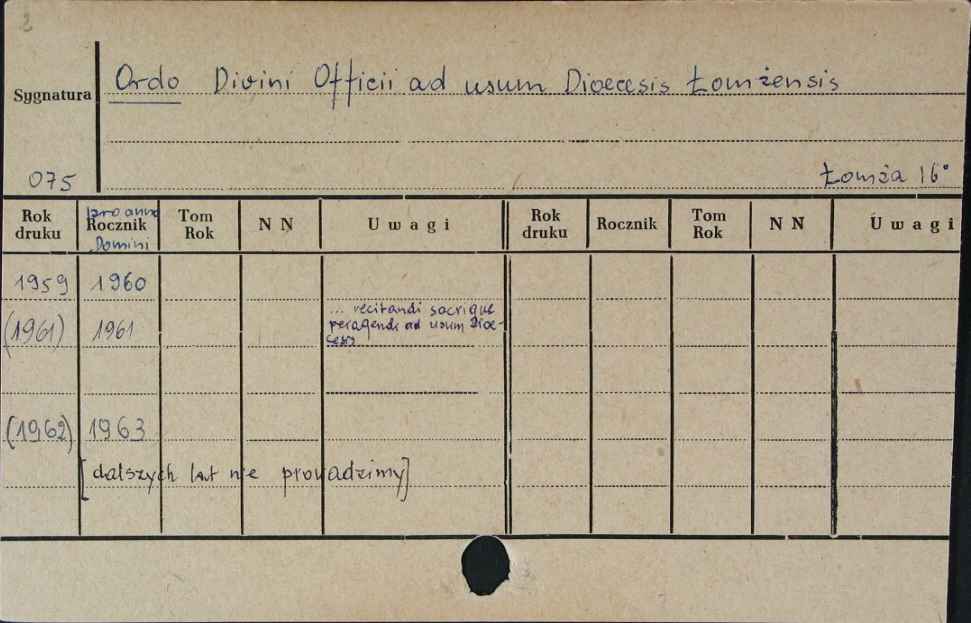 2
Ordo Divini Officii ad usum Dioecesis Łomżensis
Sygnatura
075
Łomża 16°
Rok druku
pro anno
Rocznik
Domini
Tom Rok
N N
Uwagi
Rok druku
Rocznik
Tom Rok
N N
Uwagi
1959 1960
(1961) 1961
... recitandi sacrique
peragendi ad usum Dioe-
cesis
(1962) 1963
[dalszych lat nie prowadzimy]